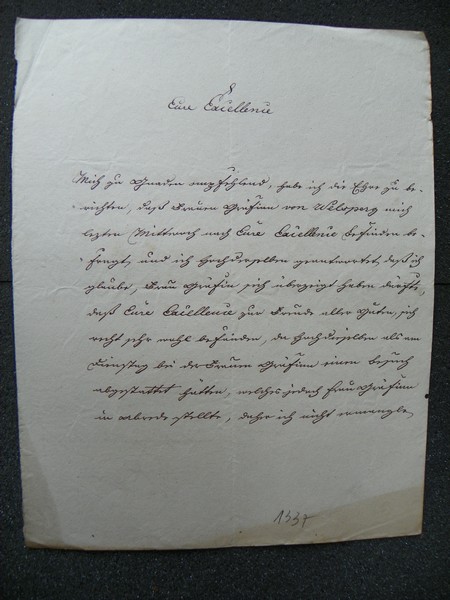 Eure Excellence
Mich zu Gnaden empfehlend, habe ich die Ehre zu be-
richten, daß Frauen Gräfinn von Welsperg mich
lezten Mittwoch nach Eure Excellence Befinden be-
fragt, und ich Hochderselben geantwortet, daß ich
glaube, Frau Gräfin sich überzeigt haben dürfte,
daß Eure Excellence zur Freude aller Guten, sich
recht sehr wohl befänden, da Hochdieselben als am
Dienstag bei der Frauen Gräfinn einen Besuch
abgestattet hätten, welches jedoch Frau Gräfinn
in Abrede stellte, daher ich nicht ermangle,
1337